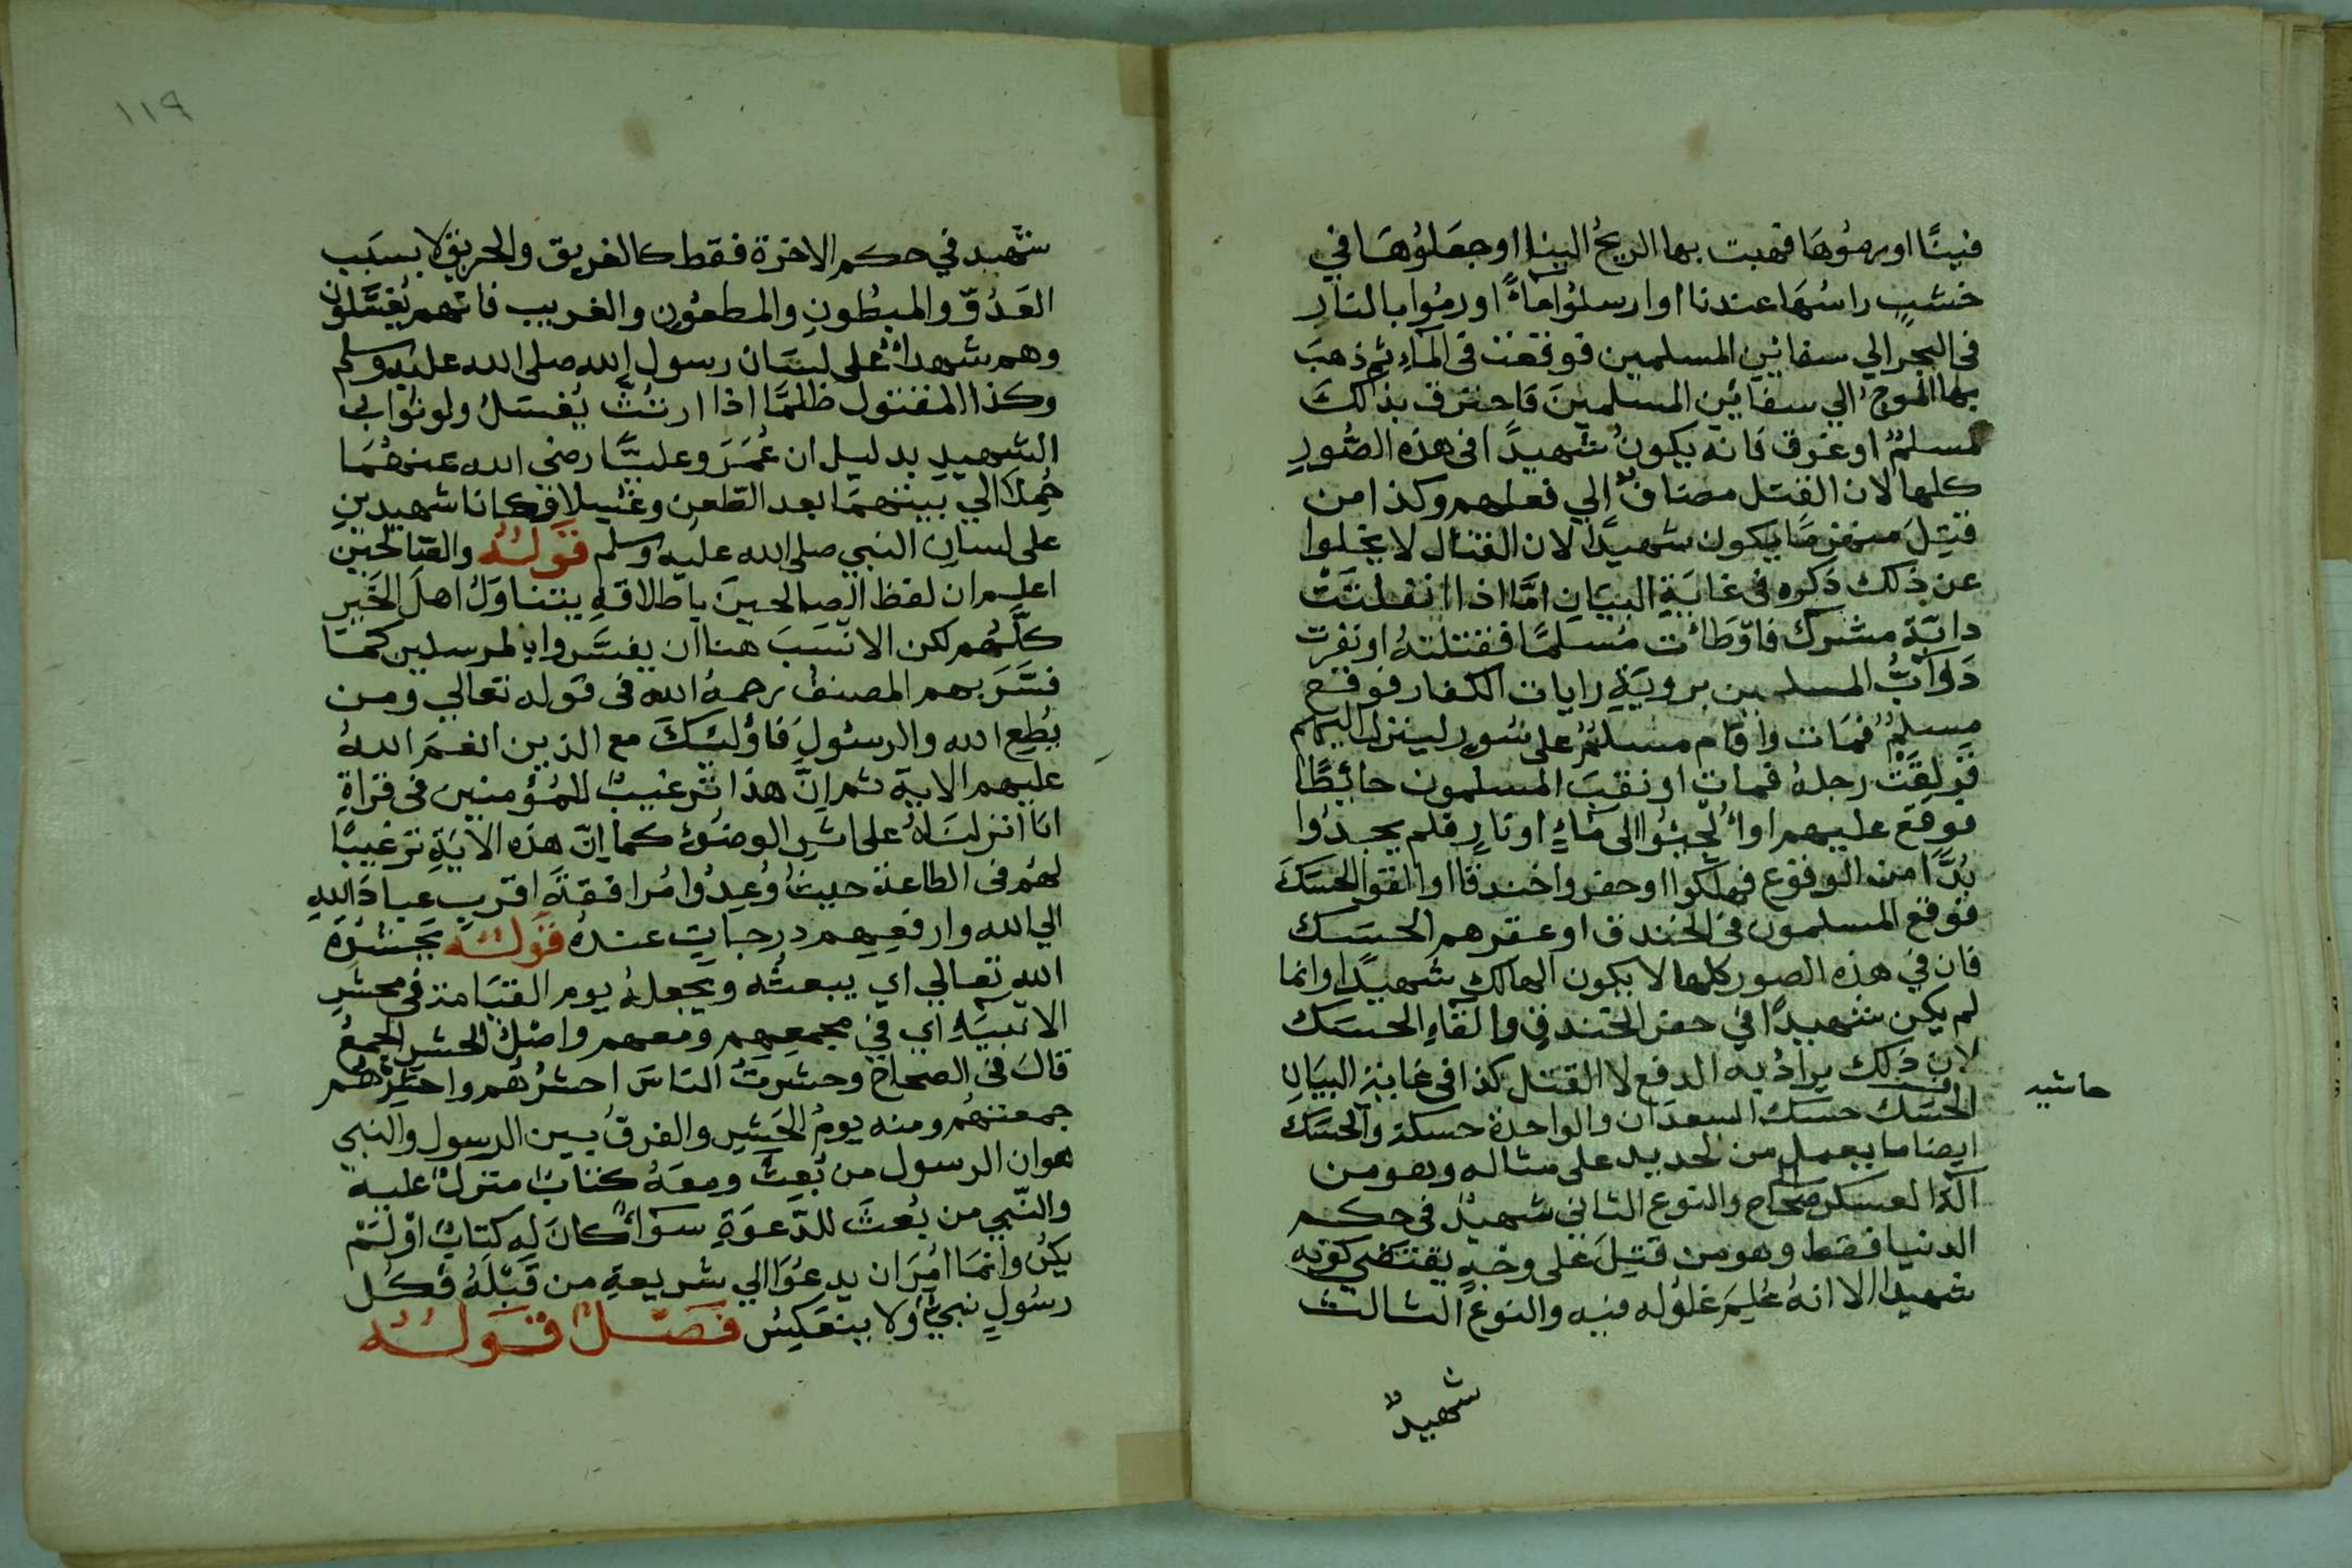 فينًا او رموُهَا فهبت بها الريحُ الينا او جعَلوُهَا في
خشبٍ راسُهَا عندنا او ارسلوُا ماءً او رموُا بالنارِ
فى البحر الي سفائنِ المسلمين فوقعت فى الماءِ ثم ذهبَ
بها الموج الي سفائنِ المسلمينَ فاحترق بذلكَ
مسلمٌ او غرق فانه يكونُ شهيدًا فى هذه الصُّورِ
كلها لان القتل مضافٌ الي فعلهم وكذا من
قتِلَ منهزمًا يكون شهيدًا لان القتال لا يخلوا
عن ذلك ذكره فى غايَةِ البيَانِ امَّا اذا انفلتَتْ
دابَّةُ مشرك فاوطَأت مُسلمًا فقتلتهُ او نفرت
دَوَابُّ المسلمين برويَةِ رايات الكفار فوقع
مسلمٌ فمَات او قام مسلمٌ على سُورٍ لينزل اليهم
فزلقَتْ رجلهُ فمات او نقبَ المسلمون حائِطًا
فوقع عليهم او الُجئوا الى مَاءٍ او نارٍ فلم يجدوُا
بُدًّا من الوقوع فهلكوا او حفروا خندقًا او القوا الحسَكَ
فوقع المسلمون فى الخندق او عقرهم الحسَك
فان في هذه الصور كلها لا يكون الهالك شهيدًا وانما
لم يكن شهيدًا في حفرِ الخندقِ والقاءِ الحسَك
لان ذلك يرادُ به الدفع لا القتل كذا فى غاية البيَانِ
حاشيه
الحسَك حسَك السعدَان والواحدةُ حسكة والحسَك
ايضا ما يعمل من الحديد على مثاله وهو من
آلة العسكر صحاح والنوع الثاني شهيدٌ فى حكم
الدنيا فقط وهو من قتِلَ على وجهٍ يقتضي كونه
شهيدا الا انهُ عُلِمَ غلوُله فيه والنوع الثالث
شهيدٌ
١١٩
شهيد في حكم الاخرة فقط كالغريق والحريق لا بسبَب
العَدُوّ والمبطُونِ والمطعوُنِ والغريب فانهم يُغسَّلونَ
وهم شهداءُ على لسَان رسول الله صلى الله عليه وسلم
وكذا المقتول ظلمًا اذا ارتثَّ يُغسَلُ ولو ثوابُ
الشهيد بدليل ان عُمَرَ وعليًّا رضي الله عنهُمَا
حُمِلا الي بيتهمَا بعد الطّعنِ وغُسِلا فكانا شهيدينِ
على لسانِ النبي صلى الله عليه وسلم قوَلهُ والصّالحينَ
اعلم ان لفظ الصالحينَ باطلاقهِ يتناوَلُ اهلَ الخَيرِ
كلّهم لكن الانسَبَ هنا ان يفسّروا بالمرسلين كما
فسَّرَ بهم المصنفُ رحمهُ الله فى قوله تعالي ومن
يُطعِ الله والرسُولَ فاؤلئِكَ مع الذين انعَمَ اللهُ
عليهم الاية ثم انَّ هذا ترغيبٌ للمُؤمنين فى قراةِ
انا انزلنَاهُ على اثرِ الوضوُءِ كما انّ هذه الايَةِ ترغيبًا
لهمُ فى الطاعة حيثُ وُعِدوُا مُرافقةَ اقربِ عبادَ اللهِ
الي الله وارفعِهِم درجاتٍ عندهُ قوَلهُ يحشرَهُ
الله تعالي اي يبعثُه ويجعلهُ يوم القيَامة فى محشرِ
الانبيَاءِ اي في مجمعِهم ومعهم واصْلُ الحشرِ الجمعُ
قالَ فى الصحاح وحشرتُ الناسَ احشرُهُم واحشِرُهُم
جمعتهُم ومنه يومُ الحَشرِ والفرقُ بين الرسول والنبي
هو ان الرسول من بُعِثَ ومعَهُ كتابٌ منزلٌ عليهِ
والنّبي من بُعثَ للدّعوَةِ سواءٌ كانَ له كتابٌ اوْ لَمْ
يكنُ وانمَا امُرَ ان يدعوَا الي شريعةِ من قَبْلَهُ فكُل
رسُولٍ نبيٌّ ولا ينعَكِسُ فصْلٌ قوَلهُ